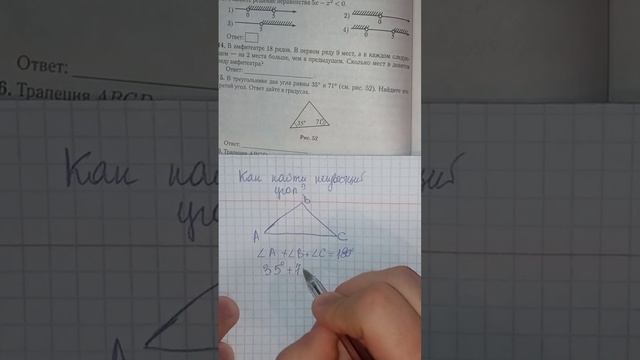 решение неравенства 5x − x² < 0.
1)
0
5
2)
0
5
3)
5
4)
0
5
Ответ:
14. В амфитеатре 18 рядов. В первом ряду 9 мест, а в каждом следую-
щем — на 2 места больше, чем в предыдущем. Сколько мест в
ряду амфитеатра?
Ответ:
5. В треугольнике два угла равны 35° и 71° (см. рис. 52). Найдите его
третий угол. Ответ дайте в градусах.
35°
71°
Рис. 52
Ответ:
Ответ:
6. Трапеция ABCD
Как найти неизвестный
угол?
B
A
C
∠A + ∠B + ∠C = 180°
35° + 7